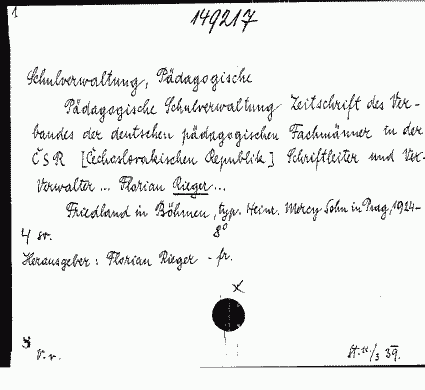 1
149217
Schulverwaltung, Pädagogische
Pädagogische Schulverwaltung Zeitschrift des Ver-
bandes der deutschen pädagogischen Fachmänner in der
ČSR [Čechoslovakischen Republik] Schriftleiter und Ver-
Verwalter ... Florian Rieger ...
Friedland in Böhmen, typ. Heinr. Mercy Sohn in Prag, 1924-
4 sv. 8°
Herausgeber: Florian Rieger - fr.
x
V. v.